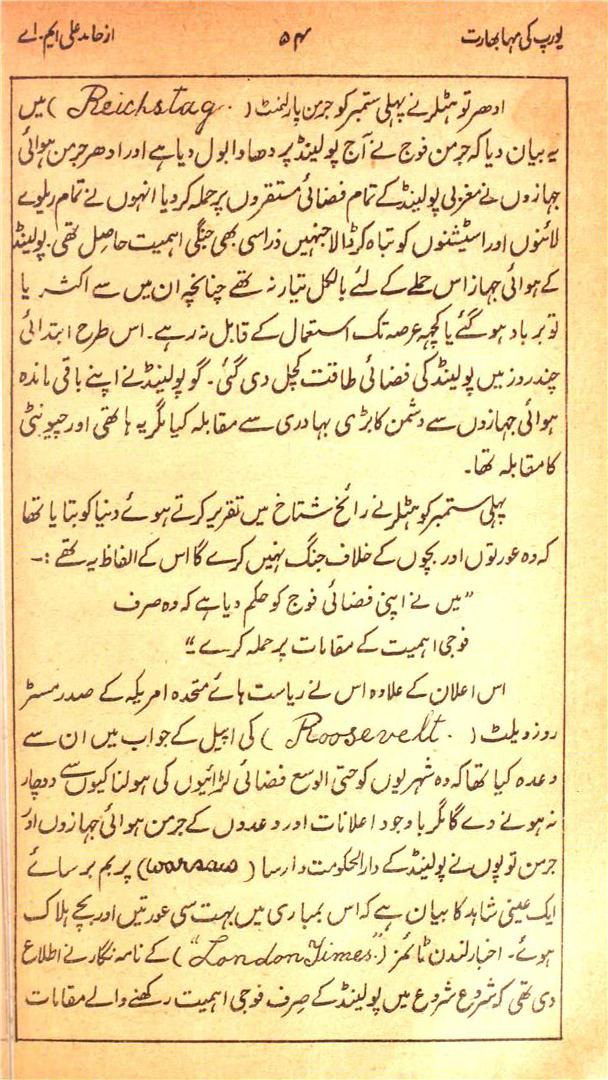 یورپ کی مہابھارت ۵۴ از حامد علی ایم۔ اے
ادھر تو ہٹلر نے پہلی ستمبر کو جرمن پارلمنٹ (Reichstag.) میں
یہ بیان دیا کہ جرمن فوج نے آج پولینڈ پر دھاوا بول دیا ہے اور ادھر جرمن ہوائی
جہازوں نے مغربی پولینڈ کے تمام فضائی مستقروں پر حملہ کر دیا انہوں نے تمام ریلوے
لائنوں اور اسٹیشنوں کو تباہ کر ڈالا جنہیں ذرا سی بھی جنگی اہمیت حاصل تھی۔ پولینڈ
کے ہوائی جہاز اس حملے کے لئے بالکل تیار نہ تھے چنانچہ ان میں سے اکثر یا
تو برباد ہو گئے یا کچھ عرصہ تک استعمال کے قابل نہ رہے۔ اس طرح ابتدائی
چند روز میں پولینڈ کی فضائی طاقت کچل دی گئی۔ گو پولینڈ نے اپنے باقی ماندہ
ہوائی جہازوں سے دشمن کا بڑی بہادری سے مقابلہ کیا مگر یہ ہاتھی اور چیونٹی
کا مقابلہ تھا۔
پہلی ستمبر کو ہٹلر نے رائخ شتاخ میں تقریر کرتے ہوئے دنیا کو بتایا تھا
کہ وہ عورتوں اور بچوں کے خلاف جنگ نہیں کرے گا اس کے الفاظ یہ تھے :۔
"میں نے اپنی فضائی فوج کو حکم دیا ہے کہ وہ صرف
فوجی اہمیت کے مقامات پر حملہ کرے"
اس اعلان کے علاوہ اس نے ریاست ہائے متحدہ امریکہ کے صدر مسٹر
روزویلٹ (Roosevelt.) کی اپیل کے جواب میں ان سے
وعدہ کیا تھا کہ وہ شہریوں کو حتی الوسع فضائی لڑائیوں کی ہولناکیوں سے دوچار
نہ ہونے دے گا مگر باوجود اعلانات اور وعدوں کے جرمن ہوائی جہازوں اور
جرمن توپوں نے پولینڈ کے دارالحکومت وارسا (warsaw) پر بم برسائے
ایک عینی شاہد کا بیان ہے کہ اس بمباری میں بہت سی عورتیں اور بچے ہلاک
ہوئے۔ اخبار لندن ٹائمز ("London Times.") کے نامہ نگار نے اطلاع
دی تھی کہ شروع شروع میں پولینڈ کے صرف فوجی اہمیت رکھنے والے مقامات